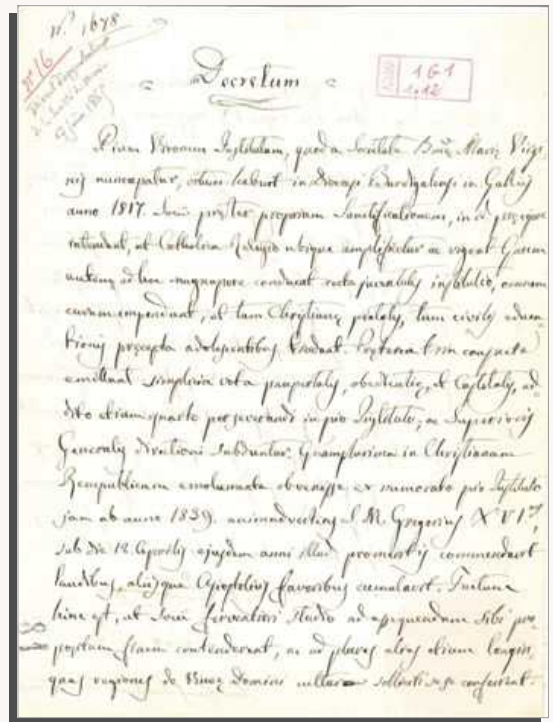 nº 1678
nº 16
Decretum
161
1.12
Pium Virorum Institutum, quod a Societate Bmæ Mariæ Virgi-
nis nuncupatur, ortum habuit in Diœcesi Burdigalensi in Galliis
anno 1817. Socii præter propriam sanctificationem, in id præcipue
intendunt, ut Catholica Religio ubique amplificetur ac vigeat. Quum
autem ad hoc magnopere conducat recta juventutis institutio, omnem
curam impendunt, ut tum Christianæ pietatis, tum civilis educa-
tionis præcepta adolescentibus tradant. Propterea tria consueta
emittunt simplicia vota paupertatis, obedientiæ, et Castitatis, ad-
dito etiam quarto perseverandi in pio Instituto, ac Superioris
Generalis directioni subduntur. Quamplurima in Christianam
Rempublicam emolumenta obvenisse ex memorato pio Instituto
jam ab anno 1839. animadvertens S. M. Gregorius XVIus
sub die 12 Aprilis ejusdem anni illud promeritis commendavit
laudibus, aliisque Apostolicis favoribus cumulavit. Factum
hinc est, ut Socii ferventiori studio ad assequendum sibi pro-
positum finem contenderent, ac ad plures alias etiam longin-
quas regiones de Vineæ Domini cultura solliciti sese conferrent.